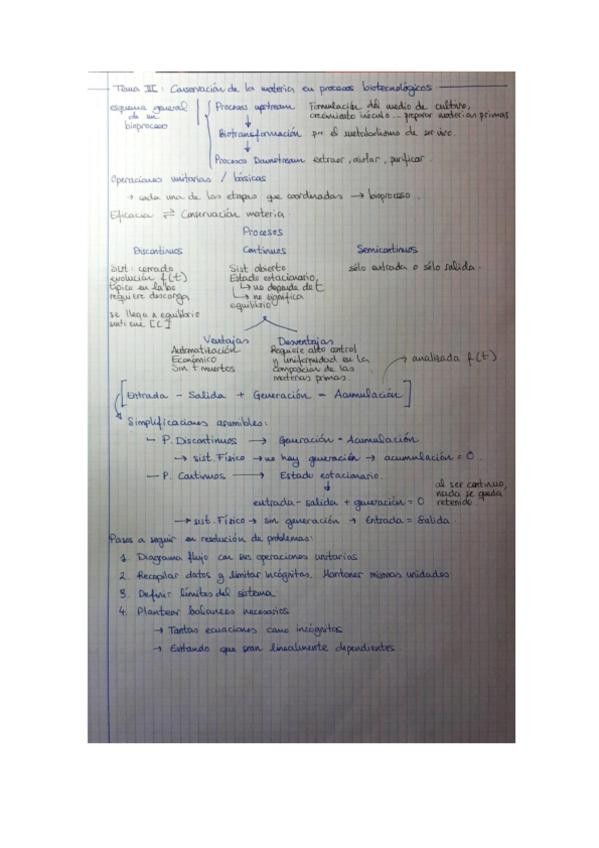 Tema III: Conservación de la materia en procesos biotecnológicos.
esquema general de un bioproceso
Procesos upstream Formulación del medio de cultivo, crecimiento inóculo... preparar materias primas
↓
Biotransformación por el metabolismo de ser vivo.
↓
Procesos Downstream extraer, aislar, purificar.
Operaciones unitarias / básicas
→ cada una de las etapas que coordinadas → bioproceso.
Eficacia ⇌ Conservación materia.
Procesos
Discontinuos Continuos Semicontinuos
Sist. cerrado Sist abierto sólo entrada o sólo salida.
evolución f(t) Estado estacionario,
típico en labo ↳ no depende de t
requiere descarga ↳ no significa
se llega a equilibrio equilibrio
[C]
Ventajas Desventajas
Automatización Requiere alto control
Económico y uniformidad en la → analizada f(t)
Sin t muertos composición de las
materias primas.
[Entrada - Salida + Generación = Acumulación]
Simplificaciones asumibles:
- P. Discontinuos → Generación = Acumulación
→ sist. Físico → no hay generación → acumulación = 0.
- P. Continuos → Estado estacionario.
↓
al ser continuo,
nada se queda
entrada - salida + generación = 0 retenido.
→ sist. Físico → sin generación → Entrada = Salida.
Pasos a seguir en resolución de problemas:
1. Diagrama flujo con sus operaciones unitarias
2. Recopilar datos y limitar incógnitas. Mantener mismas unidades
3. Definir límites del sistema
4. Plantear balances necesarios
→ Tantas ecuaciones como incógnitas
→ Evitando que sean linealmente dependientes